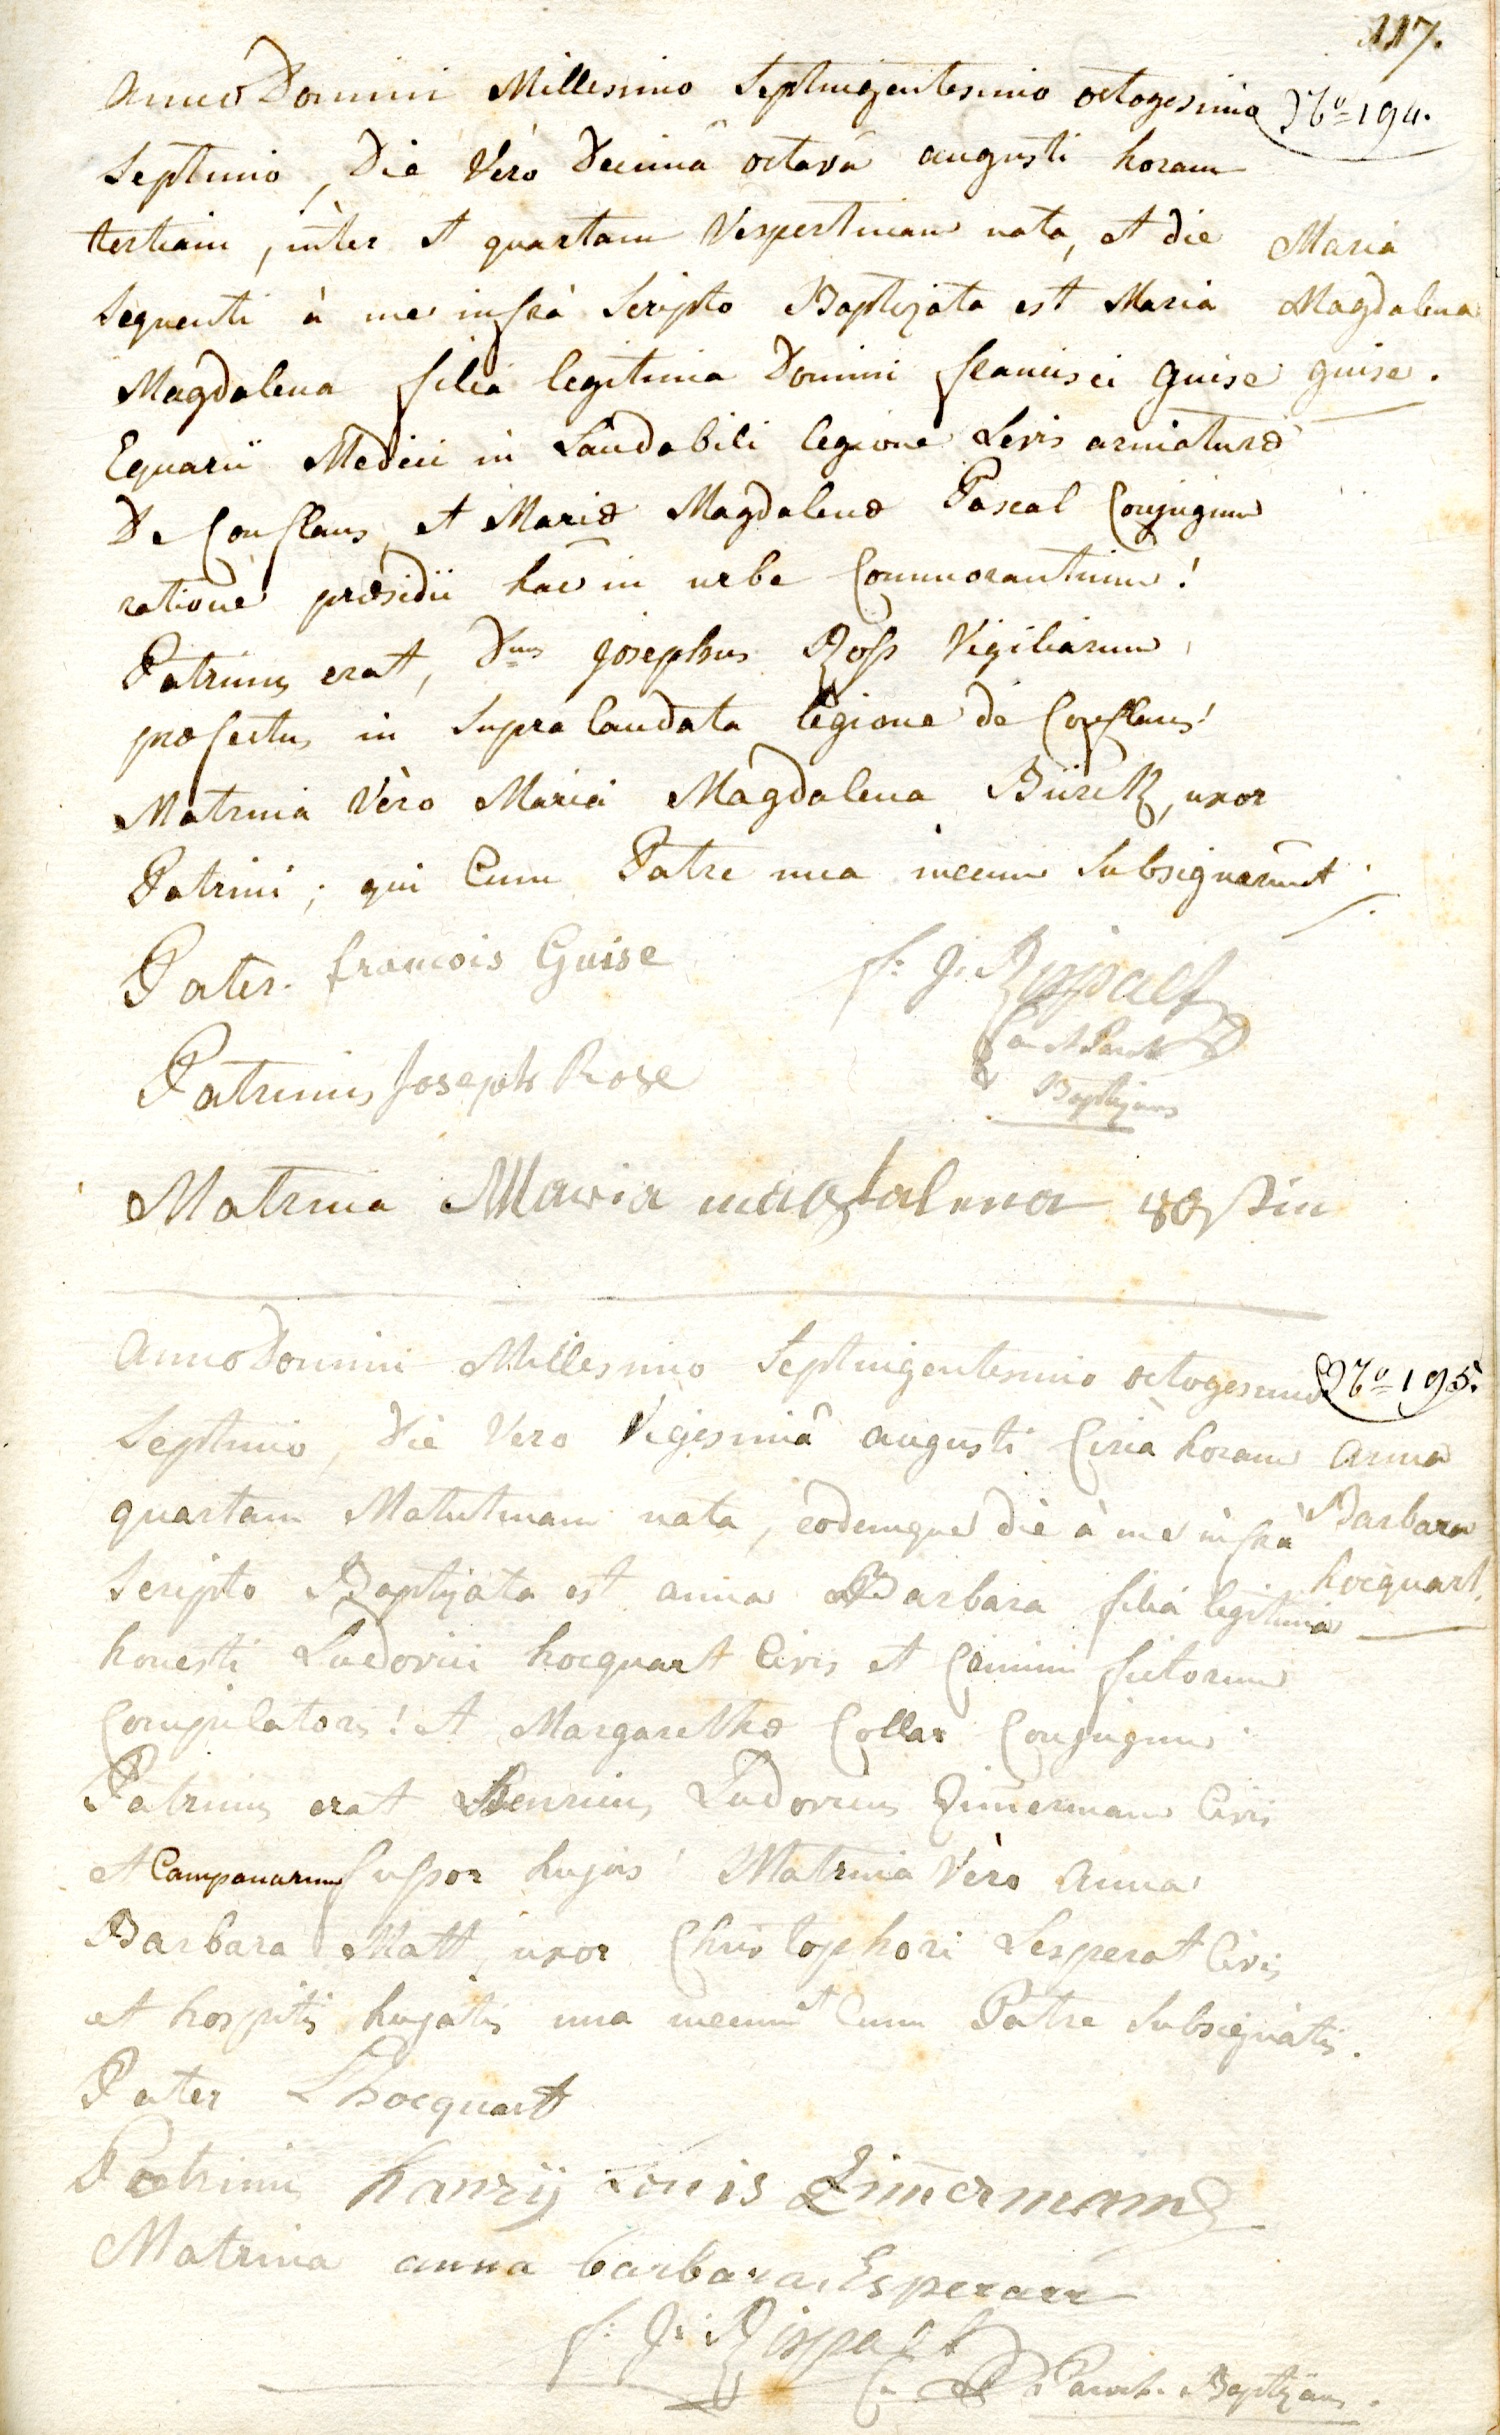 117.
Anno Domini Millesimo Septuigentesimo octogesimo
No 194.
Septimo, Die Vero Decimâ octavâ augusti horam
tertiam, inter et quartam Vespertinam nata, et die
Maria
Sequenti à me infrà Scripto Baptizata est Maria
Magdalena
Magdalena filia legitima Domini francisci Guise
guise.
Equarii Medici in Laudabili legione Levis armaturæ
De Conflans, et Mariæ Magdalenæ Pascal Conjugum
ratione præsidii hac in urbe Commorantium!
Patrinus erat, Dnus josephus Ross Vigiliarum
præfectus in Supra laudata legione de Conflans!
Matrina Vèro Maria Magdalena uxor
Patrini; qui Cum Patre una mecum Subsignarunt.
Pater. francois Guise
f: J: Rispalt
Patrinus Joseph Rose
Baptizans
Matrina Maria magdalena
Anno Domini Millesimo Septuigentesimo octogesimo
No 195.
Septimo, Die Vero Vigesimâ augusti Circà horam
Anna
quartam Matutinam nata, eodemque die à me infrà
Barbara
Scripto Baptizata est anna Barbara filia legitima
hocquart.
honesti Ludovici hocquart Civis et Crinium fictorum
Compilatoris! et Margarethæ Collar Conjugum.
Patrinus erat Henricus Ludovicus Zimerman Civis
et Campanarum fusor hujas! Matrina Vèro Anna
Barbara Matt, uxor Christophori Lesperat Civis
et hospitis hujatis una mecum et Cum Patre Subsignatis.
Pater Lhocquart
Patrinus hanrÿ Louis Zimermann
Matrina anna barbara
f: J: Rispalt
Paroch. Baptizans.